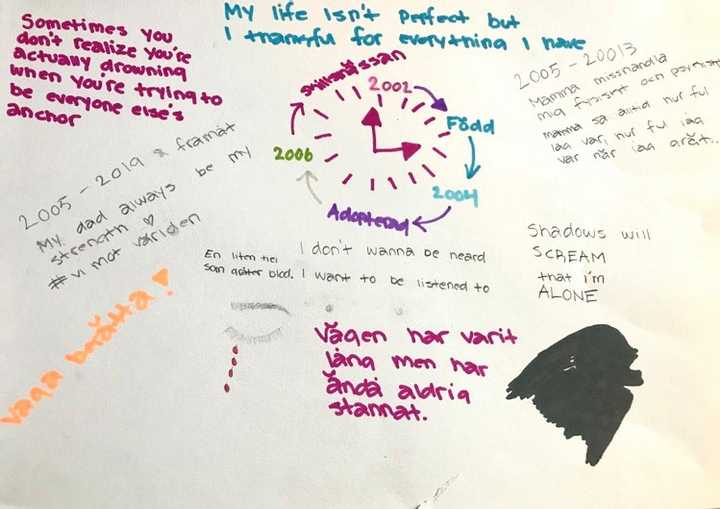 Sometimes you
don't realize you're
actually drowning
when you're trying to
be everyone else's
anchor
My life Isn't perfect but
I thankful for everything I have
2002
Född
2004
Adopterad
2006
2005 - 20013
Mamma misshandla
mig fysiskt och psykiskt
mamma sa alltid hur ful
jag var, hur ful jag
var när jag grät..
2005 - 2019 & framåt
My dad always be my
strength ♡
# vi mot världen
En liten tjej
som gråter blod.
I don't wanna be heard
I want to be listened to
Shadows will
SCREAM
that i'm
ALONE
Våga berätta!
Vägen har varit
lång men har
ändå aldrig
stannat.